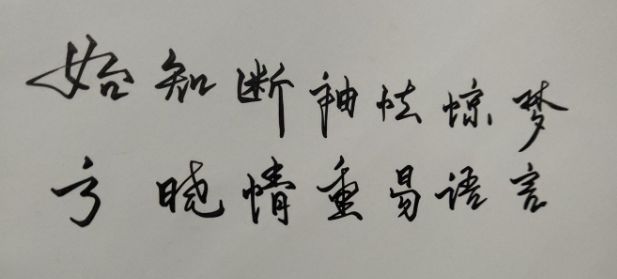 始知断袖怯惊梦
方晓情重易语言